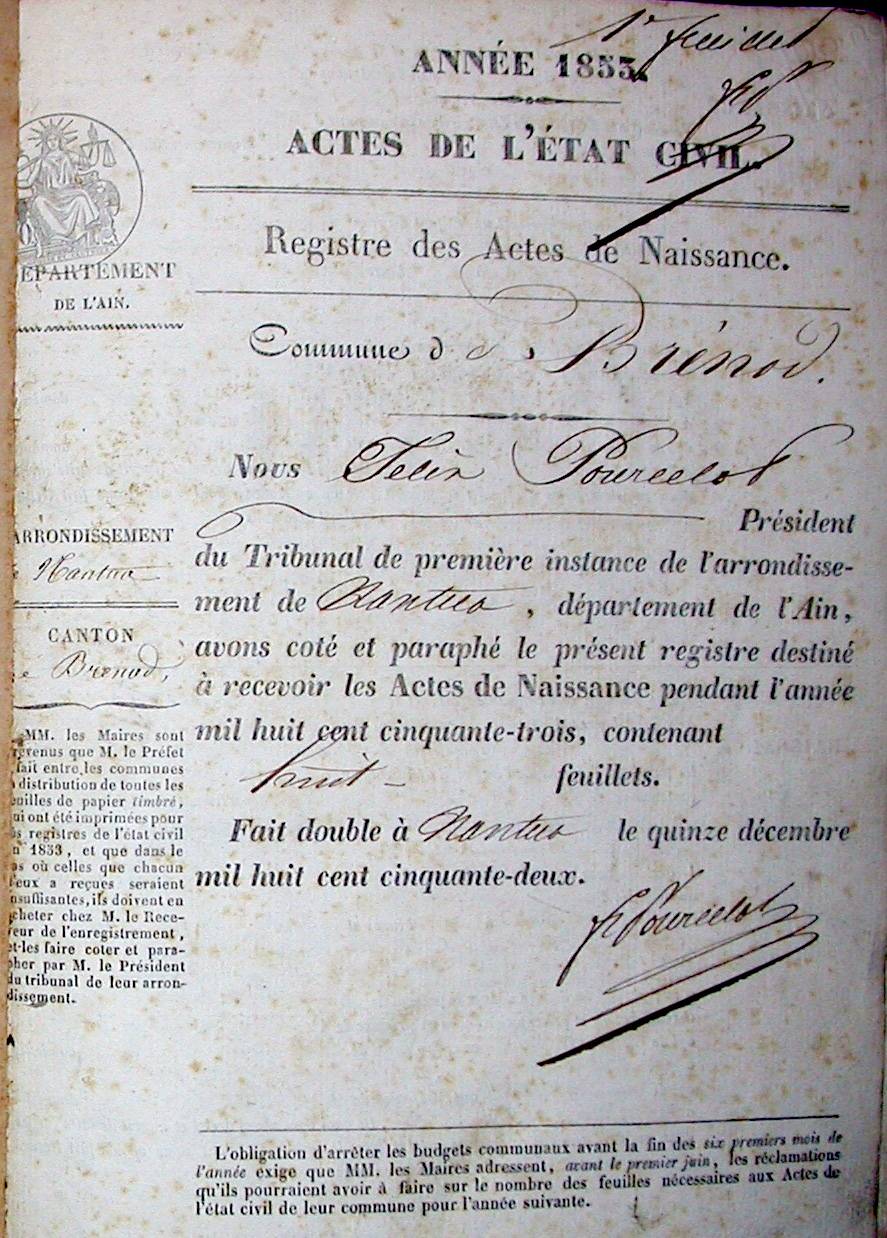 1er feuillet
ANNÉE 1853.
ACTES DE L'ÉTAT CIVIL.
Registre des Actes de Naissance.
EPARTEMENT
DE L'AIN.
Commune de Brénod.
Nous Félix Pourcelot
Président
du Tribunal de première instance de l'arrondisse-
ment de Nantua, département de l'Ain,
avons coté et paraphé le présent registre destiné
à recevoir les Actes de Naissance pendant l'année
mil huit cent cinquante-trois, contenant
huit feuillets.
Fait double à Nantua le quinze décembre
mil huit cent cinquante-deux.
F Pourcelot
ARRONDISSEMENT
e Nantua
CANTON
e Brénod,
MM. les Maires sont
revenus que M. le Préfet
fait entre les communes
distribution de toutes les
euilles de papier timbré,
ui ont été imprimées pour
s registres de l'état civil
n 1853, et que dans le
as où celles que chacun
d'eux a reçues seraient
nsuffisantes, ils doivent en
cheter chez M. le Rece-
eur de l'enregistrement,
et les faire coter et para-
pher par M. le Président
du tribunal de leur arron-
dissement.
L'obligation d'arrêter les budgets communaux avant la fin des six premiers mois de
l'année exige que MM. les Maires adressent, avant le premier juin, les réclamations
qu'ils pourraient avoir à faire sur le nombre des feuilles nécessaires aux Actes de
l'état civil de leur commune pour l'année suivante.